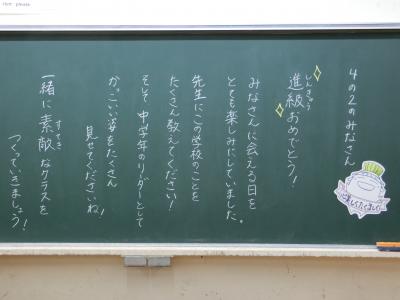 4の2のみなさん
進級おめでとう!
しんきゅう
みなさんに会える日を
とても楽しみにしていました。
先生にこの学校のことを
たくさん教えてください!
そして中学年のリーダーとして
かっこいい姿をたくさん
見せてくださいね!
一緒に素敵なクラスを
すてき
つくっていきましょう!
please